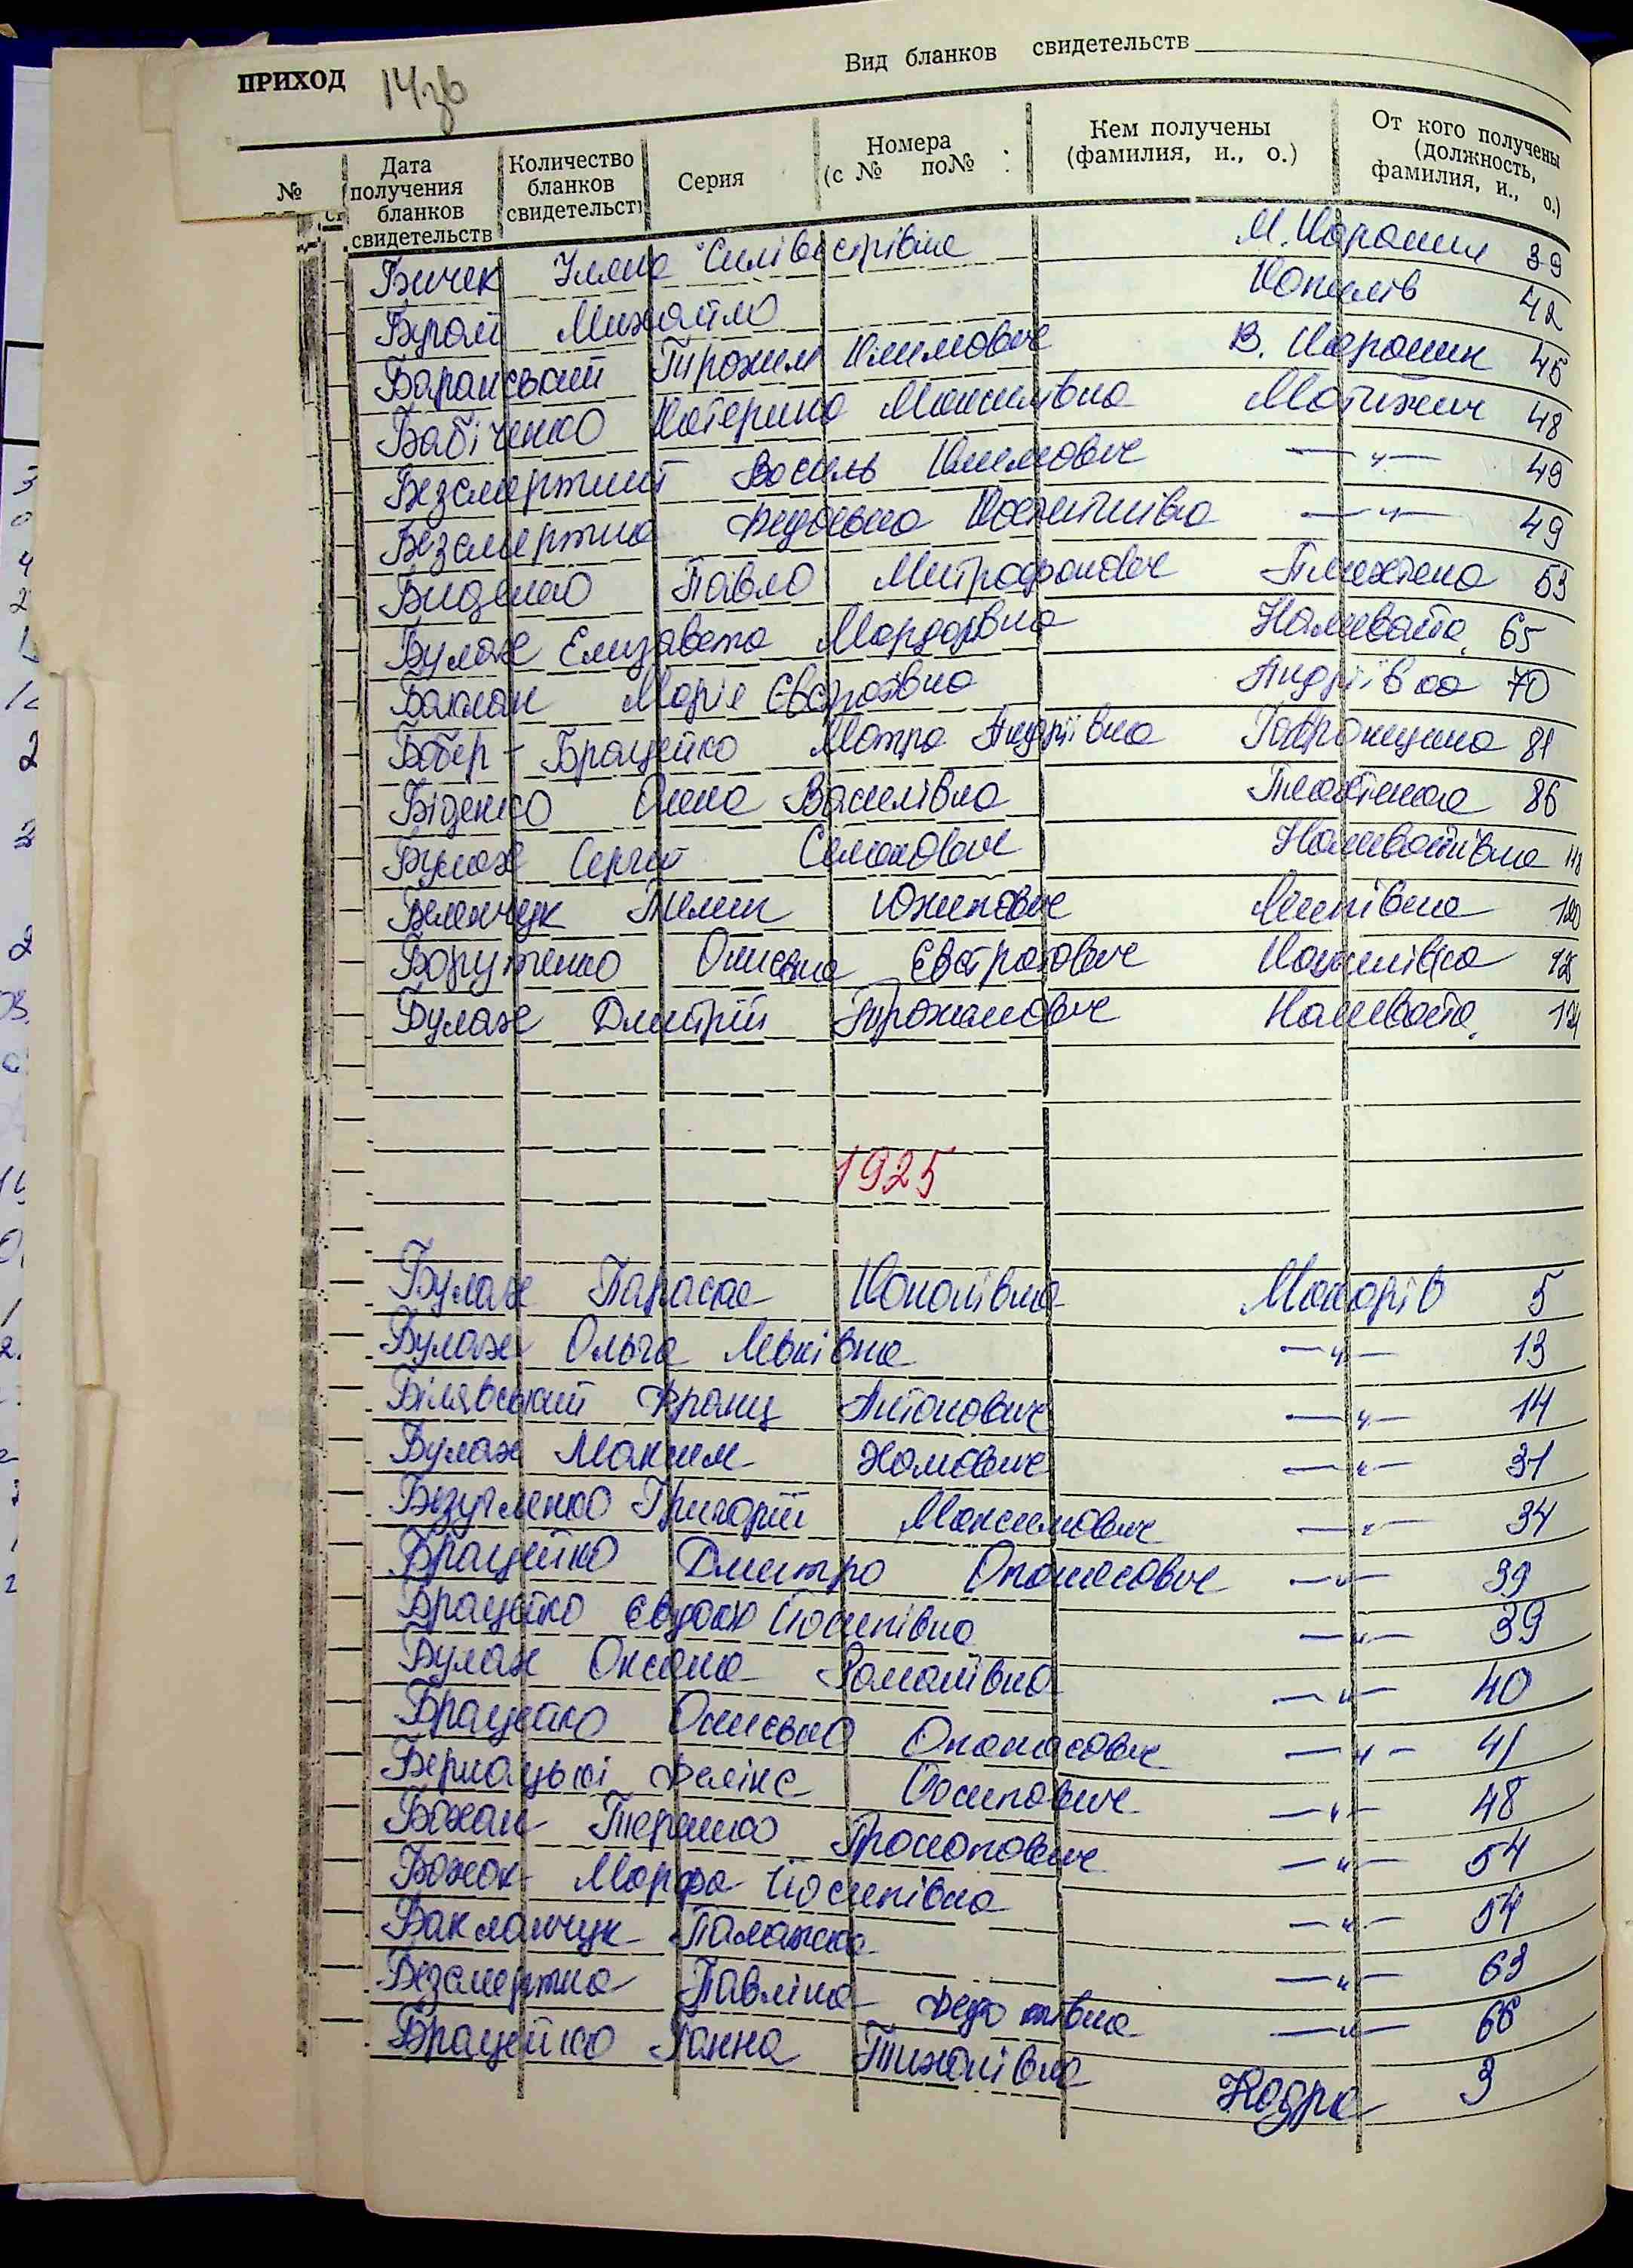 ПРИХОД 14зв
Вид бланков свидетельств
№
Дата получения бланков свидетельств
Количество бланков свидетельств
Серия
Номера (с № по№ :
Кем получены (фамилия, и., о.)
От кого получены (должность, фамилия, и., о.)
Бичек Уляна Сильвестрівна М. Карашин 39
Бурой Михайло Копилів 42
Баранський Трохим Климович В. Карашин 45
Бабіченко Катерина Максимівна Мотижин 48
Безсмертний Василь Климович —"— 49
Безсмертна Федосина —"— 49
Биденко Павло Митрофанович Плахтянка 53
Булах Елизавета Мордарівна Наливайк. 65
Баклан Марія Євстрахівна Андріївка 70
Бобер-Брацейко Мотра Андріївна Гавронщина 81
Біденко Олена Василівна Плахтянка 86
Булах Сергій Семенович Наливайківка 118
Беленчук Мелет Юхимович Липівка 120
Борутенко Олексій Євстратович Копилівка
Булах Дмитрій Трохимович Наливайк. 124
1925
Булах Параска Кононівна Макарів 5
Булах Ольга Левківна —"— 13
Білявський Франц Антонович —"— 14
Булах Максим Хомович —"— 31
Безугленко Григорій Максимович —"— 34
Брацейко Дмитро Опанасович —"— 39
Брацейко Євдокія Йосипівна —"— 39
Булах Оксана Романівна —"— 40
Брацейко Олексій Опанасович —"— 41
Бернацькі Фелікс Йосипович —"— 48
Бажан Терешко Прокопович —"— 54
Божок Марфа Йосипівна —"— 54
Бакланчук Палажка —"— 63
Безсмертна Павліна Федотівна —"— 66
Брацейко Ганна Тихонівна Кодра 3